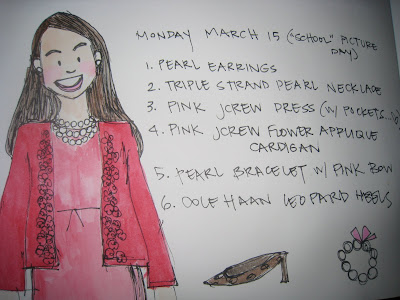 MONDAY MARCH 15 ("SCHOOL" PICTURE
DAY)
1. PEARL EARRINGS
2. TRIPLE STRAND PEARL NECKLACE
3. PINK JCREW DRESS (W/ POCKETS...
4. PINK JCREW FLOWER APPLIQUE
CARDIGAN
5. PEARL BRACELET W/ PINK BOW
6. COLE HAAN LEOPARD HEELS